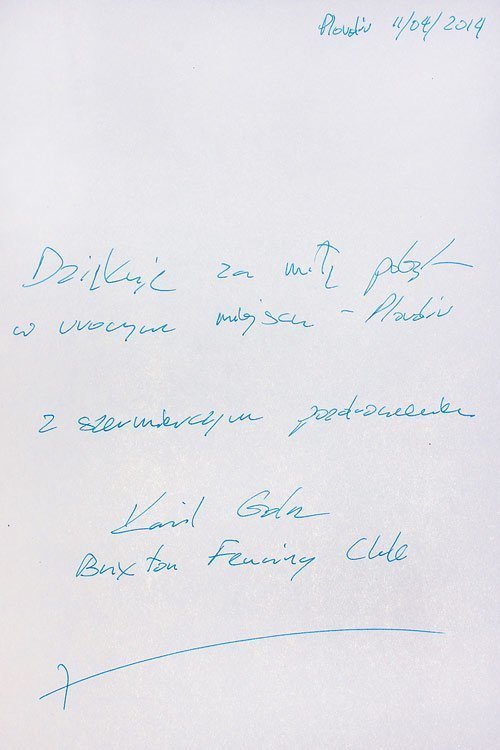 Plovdiv 11/04/2014
Dziękuję za miły pobyt
w uroczym miejscu - Plovdiv
z szermierczym pozdrowieniem
Kamil
Brixton Fencing Club